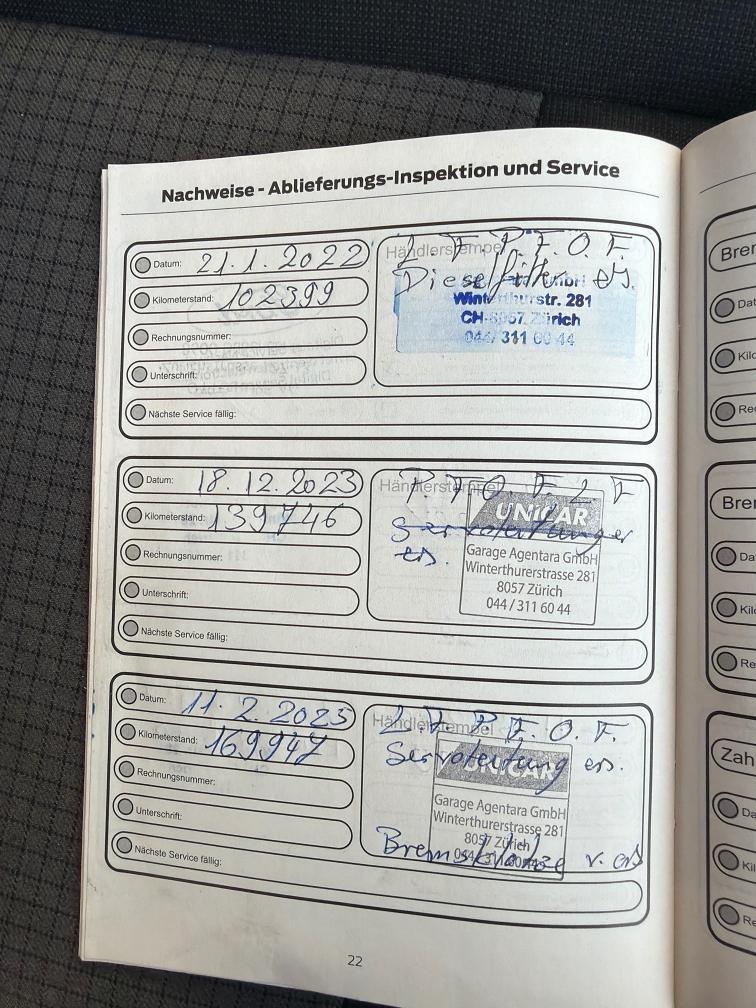 Nachweise - Ablieferungs-Inspektion und Service
Datum: 21.1.2022
Kilometerstand: 102399
Rechnungsnummer:
Unterschrift:
Nächste Service fällig:
Händlerstempel
L. F. P. F. O. F.
Dieselfilter ers.
Winterthurstr. 281
CH-8057 Zürich
044/ 311 60 44
Datum: 18.12.2023
Kilometerstand: 139746
Rechnungsnummer:
Unterschrift:
Nächste Service fällig:
Händlerstempel
UNICAR
ers.
Garage Agentara GmbH
Winterthurerstrasse 281
8057 Zürich
044 / 311 60 44
Datum: 11.2.2025
Kilometerstand: 169947
Rechnungsnummer:
Unterschrift:
Nächste Service fällig:
Händlerstempel
UNICAR
ers.
Garage Agentara GmbH
Winterthurerstrasse 281
8057 Zürich
v. ers
22
Brem
Dat
Kilo
Re
Brem
Da
Kilo
Re
Zah
Da
Kil
Re